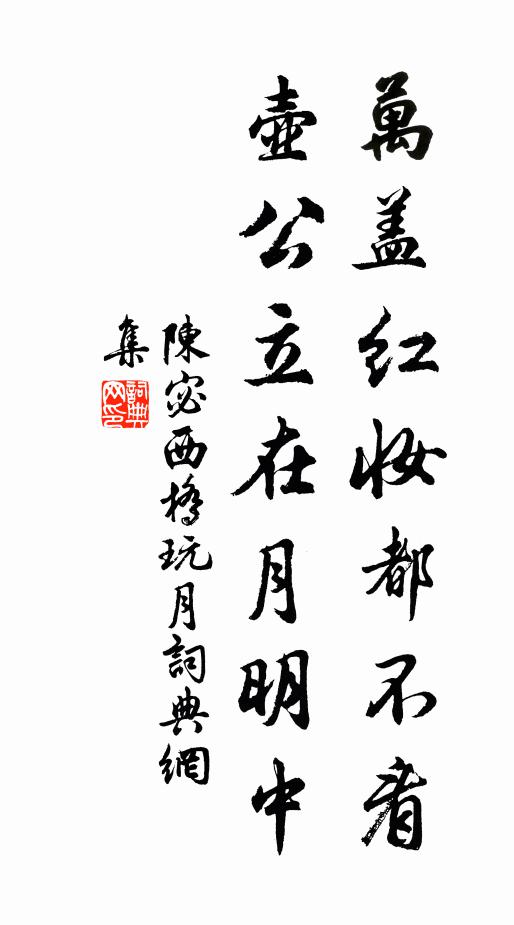 萬盖红妆都不看
壺公立在月明中
陳宓西橋玩月詞典網
集
詞典
网印